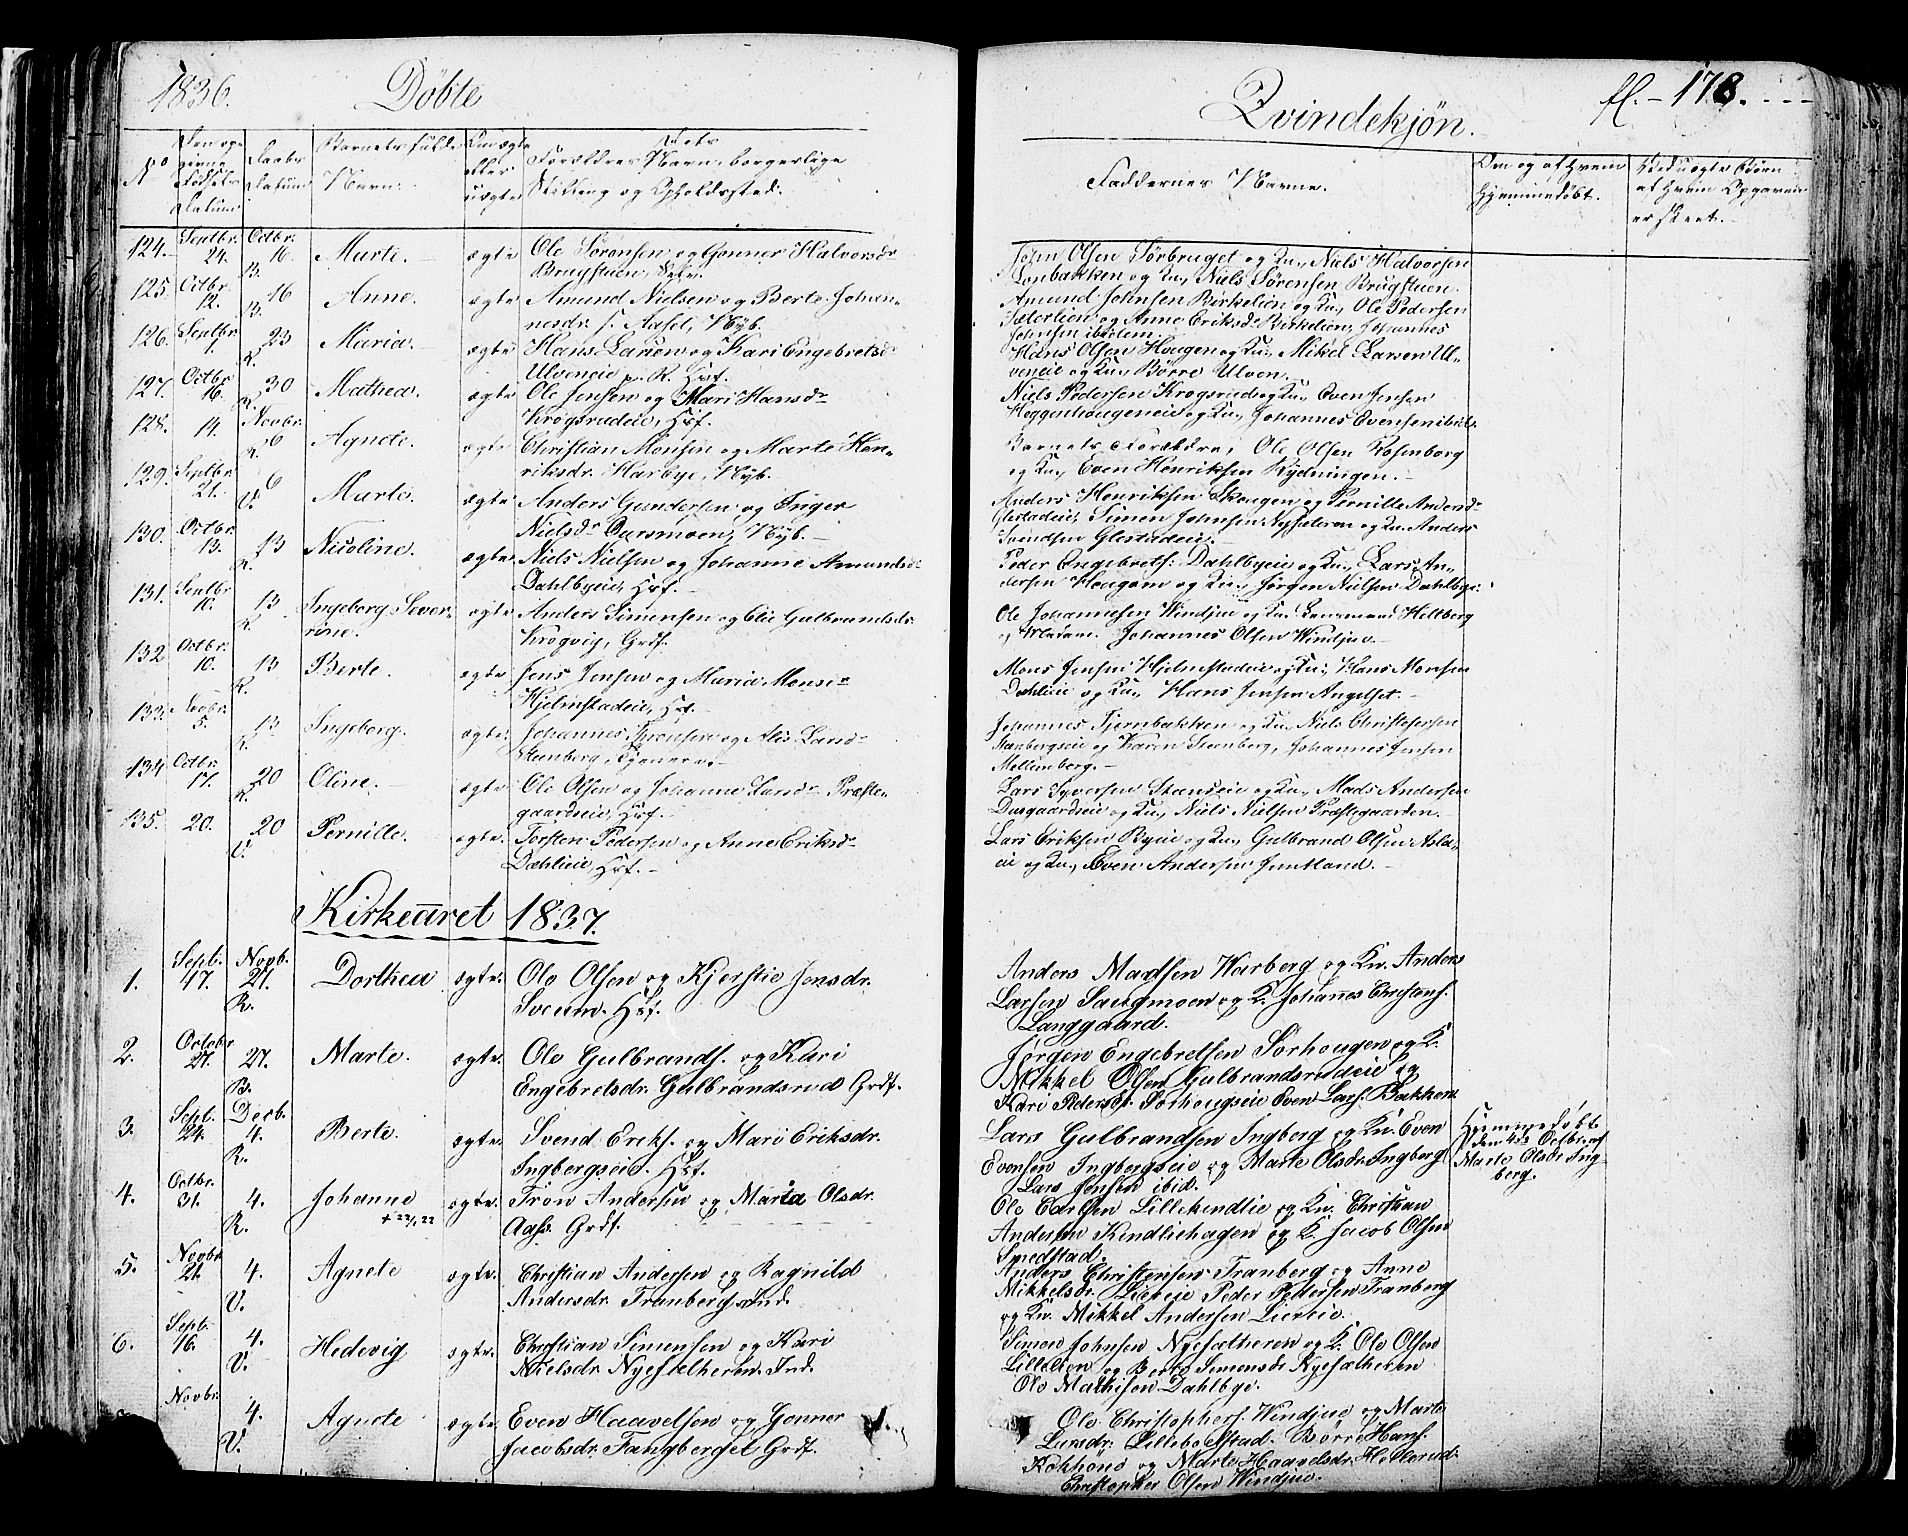 1836.
Döbte
Qvindekjön.
fl. - 178.
No
Den opgivne Fødsels Datum
Daabs Datum
Barnets fulde Navn.
Om ægte eller uægte
Forældres Navn, borgerlige Stilling og Opholdssted.
Faddernes Navne.
Om og af Hvem Hjemmedöbt.
Ved uægte Börn af Hvem Opgaven er skeet.
124. Septbr. 24. Octbr. 16 B. Marte. ægte Ole Sörensen og Gonner Halvorsdr
Brugstuen,
John Olsen Sörbruget og Ku., Niels Halvorsen
Lonbakken og Ku., Niels Sörensen Brugstuen.
125. Octbr. 12. 16 B. Anne. ægte Amund Nielsen og Berte Johan-
nesdr. Nyb.
Amund Johnsen Birkelien og Ku., Ole Pedersen
Sæterlien og Anne Eriksdr Birkelien, Johannes
Johnsen ibidem.
126. Septbr. 1. 23 R. Maria. ægte Hans Larsen og Kari Engebretsdr
Ulveneie p. R. Hsf.
Hans Olsen Hougen og Ku., Mikel Larsen Ul-
veneie og Ku., Börre Ulven.
127. Octbr. 16. 30 R. Mathea. ægte Ole Jensen og Mari Hansdr
Krogsrudeie, Hsf.
Niels Pedersen Krogsrudeie og Ku., Even Jensen
Heggenhougeneie og Ku., Johannes Evensen ibid.
128. 14. Novbr. 6 R. Agnete. ægte Christian Monsen og Marte Hen-
riksdr. Nyb.
Barnets Forældre, Ole Olsen Rosenborg
og Ku., Even Henriksen Rydningen.
129. Septbr. 21. 6 V. Marte. ægte Anders Gundersen og Inger
Nielsdr Nyb.
Anders Henriksen Skougen og Pernille Andersdr
Glestadeie, Simen Johnsen Nyseteren og Ku. Anders
Svendsen Glestadeie.
130. Octbr. 13. 13 R. Nicoline. ægte Niels Nielsen og Johanne Amundsdr
Dahlbyeie, Hsf.
Peder Engebrets: Dahlbyeie og Ku., Lars An-
dersen Hougom og Ku., Jörgen Nielsen Dahlbye:
131. Septbr 10. 13 R. Ingeborg Sever-
rine. ægte Anders Simensen og Olie Gulbrandsdr
Krogvig, Grdf.
Ole Johannesen Windjue og Ku. Lensmand Hellberg
og Madam. Johannes Olsen Windjue.
132 Octbr. 10. 13 R. Berte. ægte Jens Jensen og Maria Monsdr
Hjelmstadeie, Hsf.
Mons Jensen Hjelmstadeie og Ku., Hans Monsen
Dahleie og Ku., Hans Jensen Angelset.
133. Novbr. 5. 13 R. Ingeborg. ægte Johannes
Steenberg, Tjenere.
Johannes Tjernbakken og Ku. Niels Christophersen
Steenbergseie og Karen Steenberg, Johannes Jensen
Mellemberg.
134 Octbr. 17. 20 R. Oline. ægte Ole Olsen og Johanne Larsdr Præste-
gaardeie, Hsf.
Lars Syversen Standeie og Ku., Mads Andersen
Dusgaardseie og Ku., Niels Nielsen Præstegaarden.
135. 20. 20 V. Pernille. ægte Torsten Pedersen og Anne Eriksdr
Dæhlieie, Hsf.
Lars Eriksen Byeie og Ku., Gulbrand Olsen Asla-
eie og Ku., Even Andersen Jemtland.
Kirkeaaret 1837.
1. Sept. 17. Novb. 27. R. Dorthea ægte. Ole Olsen og Kjerstie Jensdr.
Sveum. Hsf.
Anders Madtsen Warberg og Ku. Anders
Larsen Saugmoen og K. Johannes Christens.
Langgaard.
2. Octobr. 27. 27. B. Marte. ægte. Ole Gulbrands. og Kari
Engebretsdr. Gulbrandsrud Grdf.
Jørgen Engebretsen Sorhougen og K.
Mikkel Olsen Gulbrandsrudeie og
Kari Pedersdr. Sorhougseie Even Lars. Bakken
3. Sept. 24. Decb. 4. R. Berte. ægte. Svend Eriks. og Mari Eriksdr.
Ingbergseie. Hsf.
Lars Gulbrandsen Ingberg og Ku. Even
Evensen Ingbergseie og Marte Olsdr. Ingberg
Lars Jensen ibid.
Hjemmedöbt
den 4de Octbr. af
Marte Olsdr. Ing-
berg.
4. Octbr. 31. 4. R. Johanne
ægte. Tron Andersen og Marta Olsdr.
Aass. Grdf.
Ole Carlsen Lillekindlie og Ku. Christian
Andersen Kindliehagen og K. Jacob Olsen
Smedstad.
5. Novbr. 21. 4. V. Agnete ægte. Christian Andersen og Ragnild
Andersdr. Tranberg Ind.
Anders Christensen Tranberg og Anne
Mikkelsdr. Lieeie Peder Pedersen Tranberg
og Ku. Mikkel Andersen Lieeie.
6. Sept. 16. 4. V. Hedevig ægte. Christian Simensen og Kari
Nielsdr. Nyesætheren. Ind.
Simen Johnsen Nyesætheren og K. Ole Olsen
Lillelien og Berte Simensdr Nyesætheren
Ole Mathisen Dahlbye.
Novbr. 4. V. Agnete ægte. Even Haavelsen og Gonner
Jacobsdr. Fangberget Grdf.
Ole Christophers. Windjue og Marte
Larsdr. Lillebolstad. Börre Hans.
og Marte Haavelsdr.
Christopher Olsen Windjue.